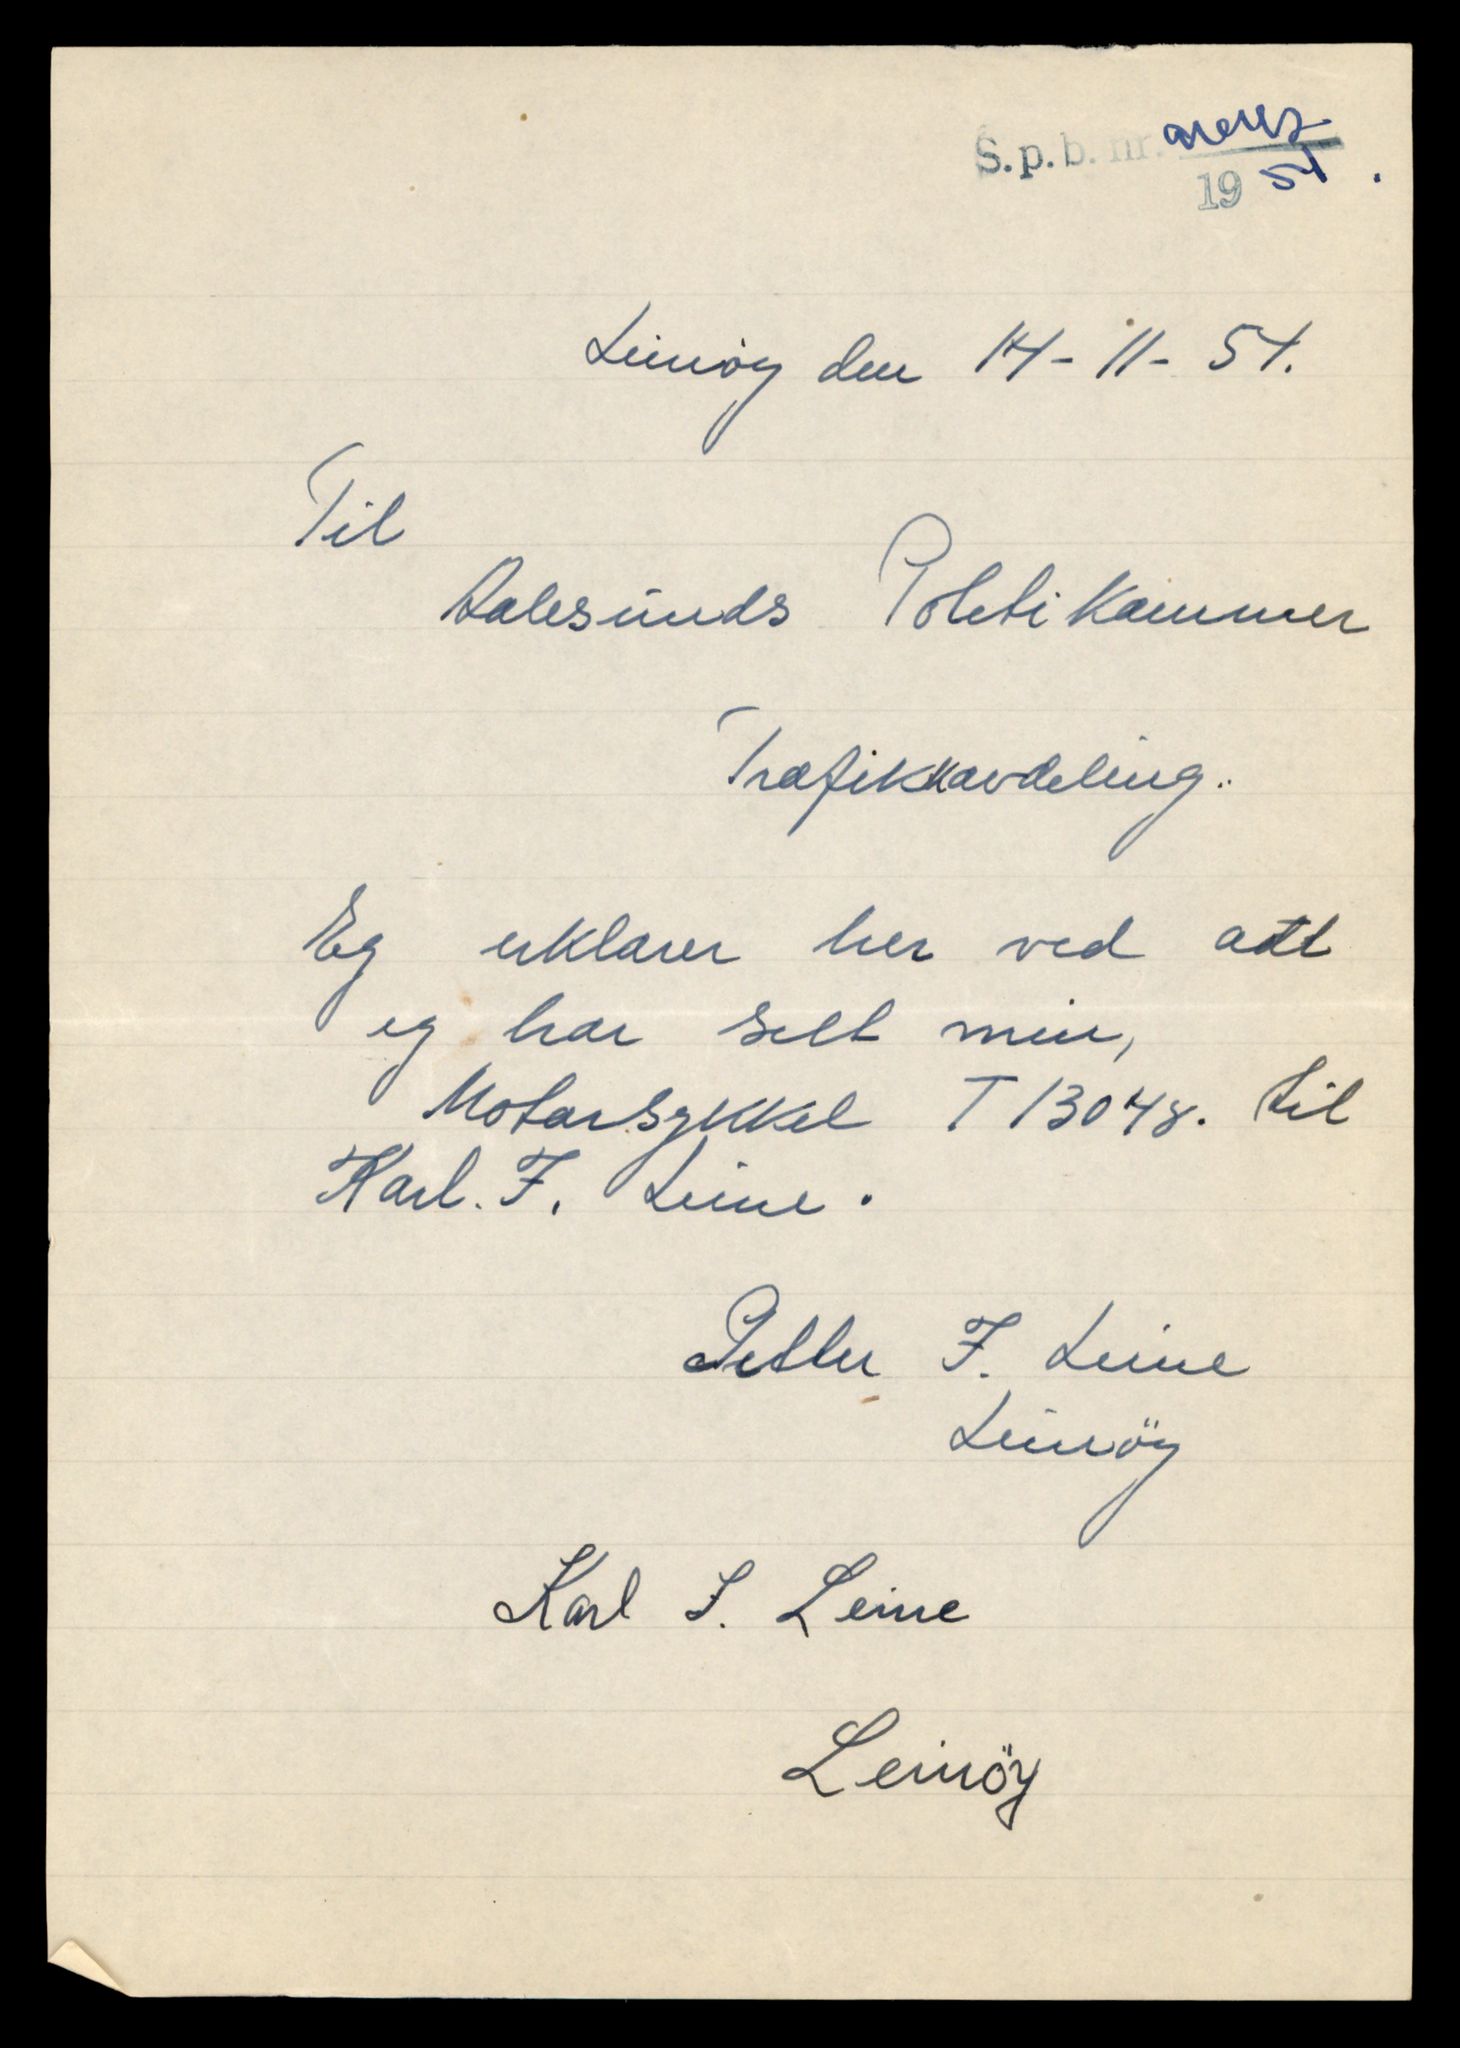 S.p.b. nr.
19 54.
Leinøy den 14-11-54.
Til
Aalesunds Politikammer
Trafikkavdeling.
Eg erklarer her ved att
eg har selt min,
Motorsykkel T 13048. til
Karl. F. Leine.
Petter F. Leine
Leinöy
Karl F. Leine
Leinöy